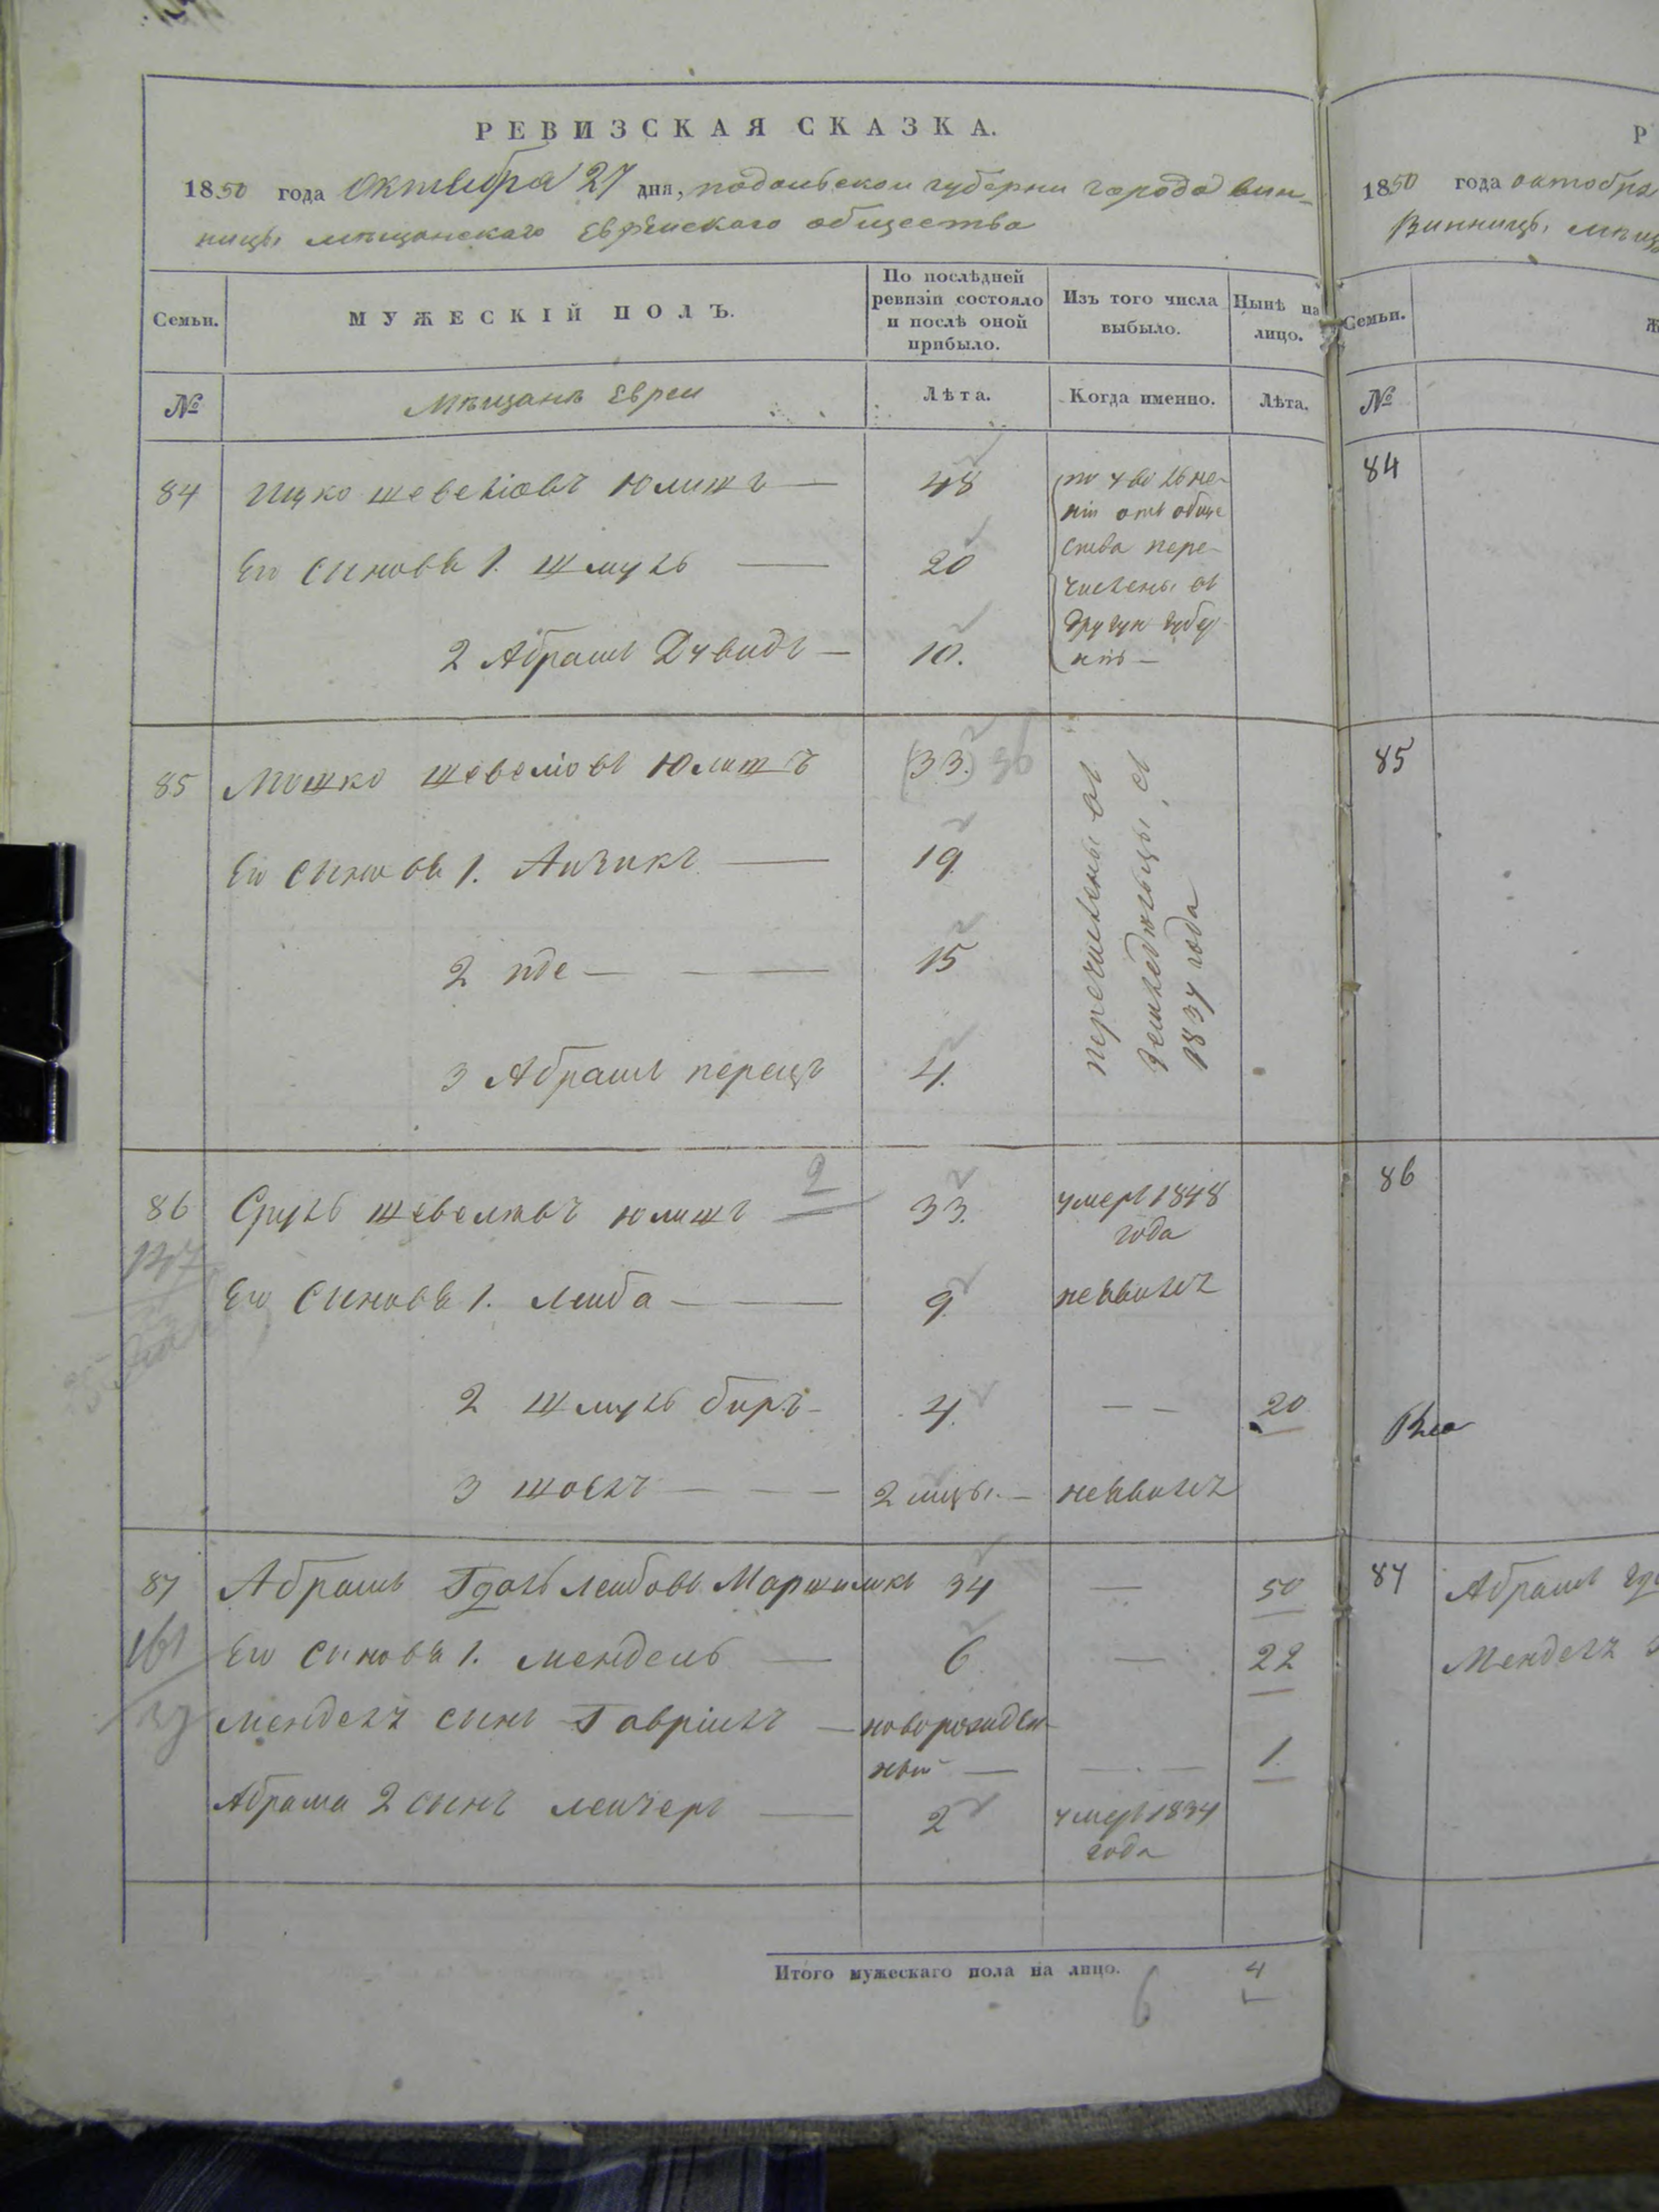 РЕВИЗСКАЯ СКАЗКА.
1850 года Октября 27 дня, подольской губерни города вин-
ницы мѣщанскаго Еврейскаго общества
Семьи.
МУЖЕСКІЙ ПОЛЪ.
По послѣдней ревизіи состояло и послѣ оной прибыло.
Изъ того числа выбыло.
Нынѣ на лицо.
№
Мѣщанъ Евреи
Лѣта.
Когда именно.
Лѣта.
84 Ицко Шевеліовъ Юлишъ — 48
по увольне-
ніи отъ обще
ства пере-
числены въ
другую губер
нію —
Его Сыновя 1. Шмуль — 20
2 Абрамъ Дувидъ — 10.
85 Мошко Шевеліовъ Юлишъ (33.) 36
перечислены въ
земледѣльцы, съ
1837 года
Его Сыновя 1. Аизикъ — 19.
2 иде — — — 15
3 Абрамъ перецъ 4.
86 Сруль Шевелювъ Юлишъ — 33. умеръ 1848
года
2
147
Его Сыновя 1. Лейба — — 9. неявился
2 Шмуль беръ — 4. — — 20
3 Шоель — — — 2 мцы. — неявился
87 Абрамъ Гдаль Лейбовъ Маржишкъ 34 — 50
161
Его Сыновя 1. Мендель — 6. — 22
Мендель сынъ Гавріилъ — новорожден-
ный — — . — 1.
Абрама 2 сынъ Лейзеръ — 2 умеръ 1834
года
Итого мужескаго пола на лицо. 6 4
Р
1850 года октября
Винницы, мѣщ
Семьи.
Ж
№
84
85
86
87 Абрамъ
Мендель